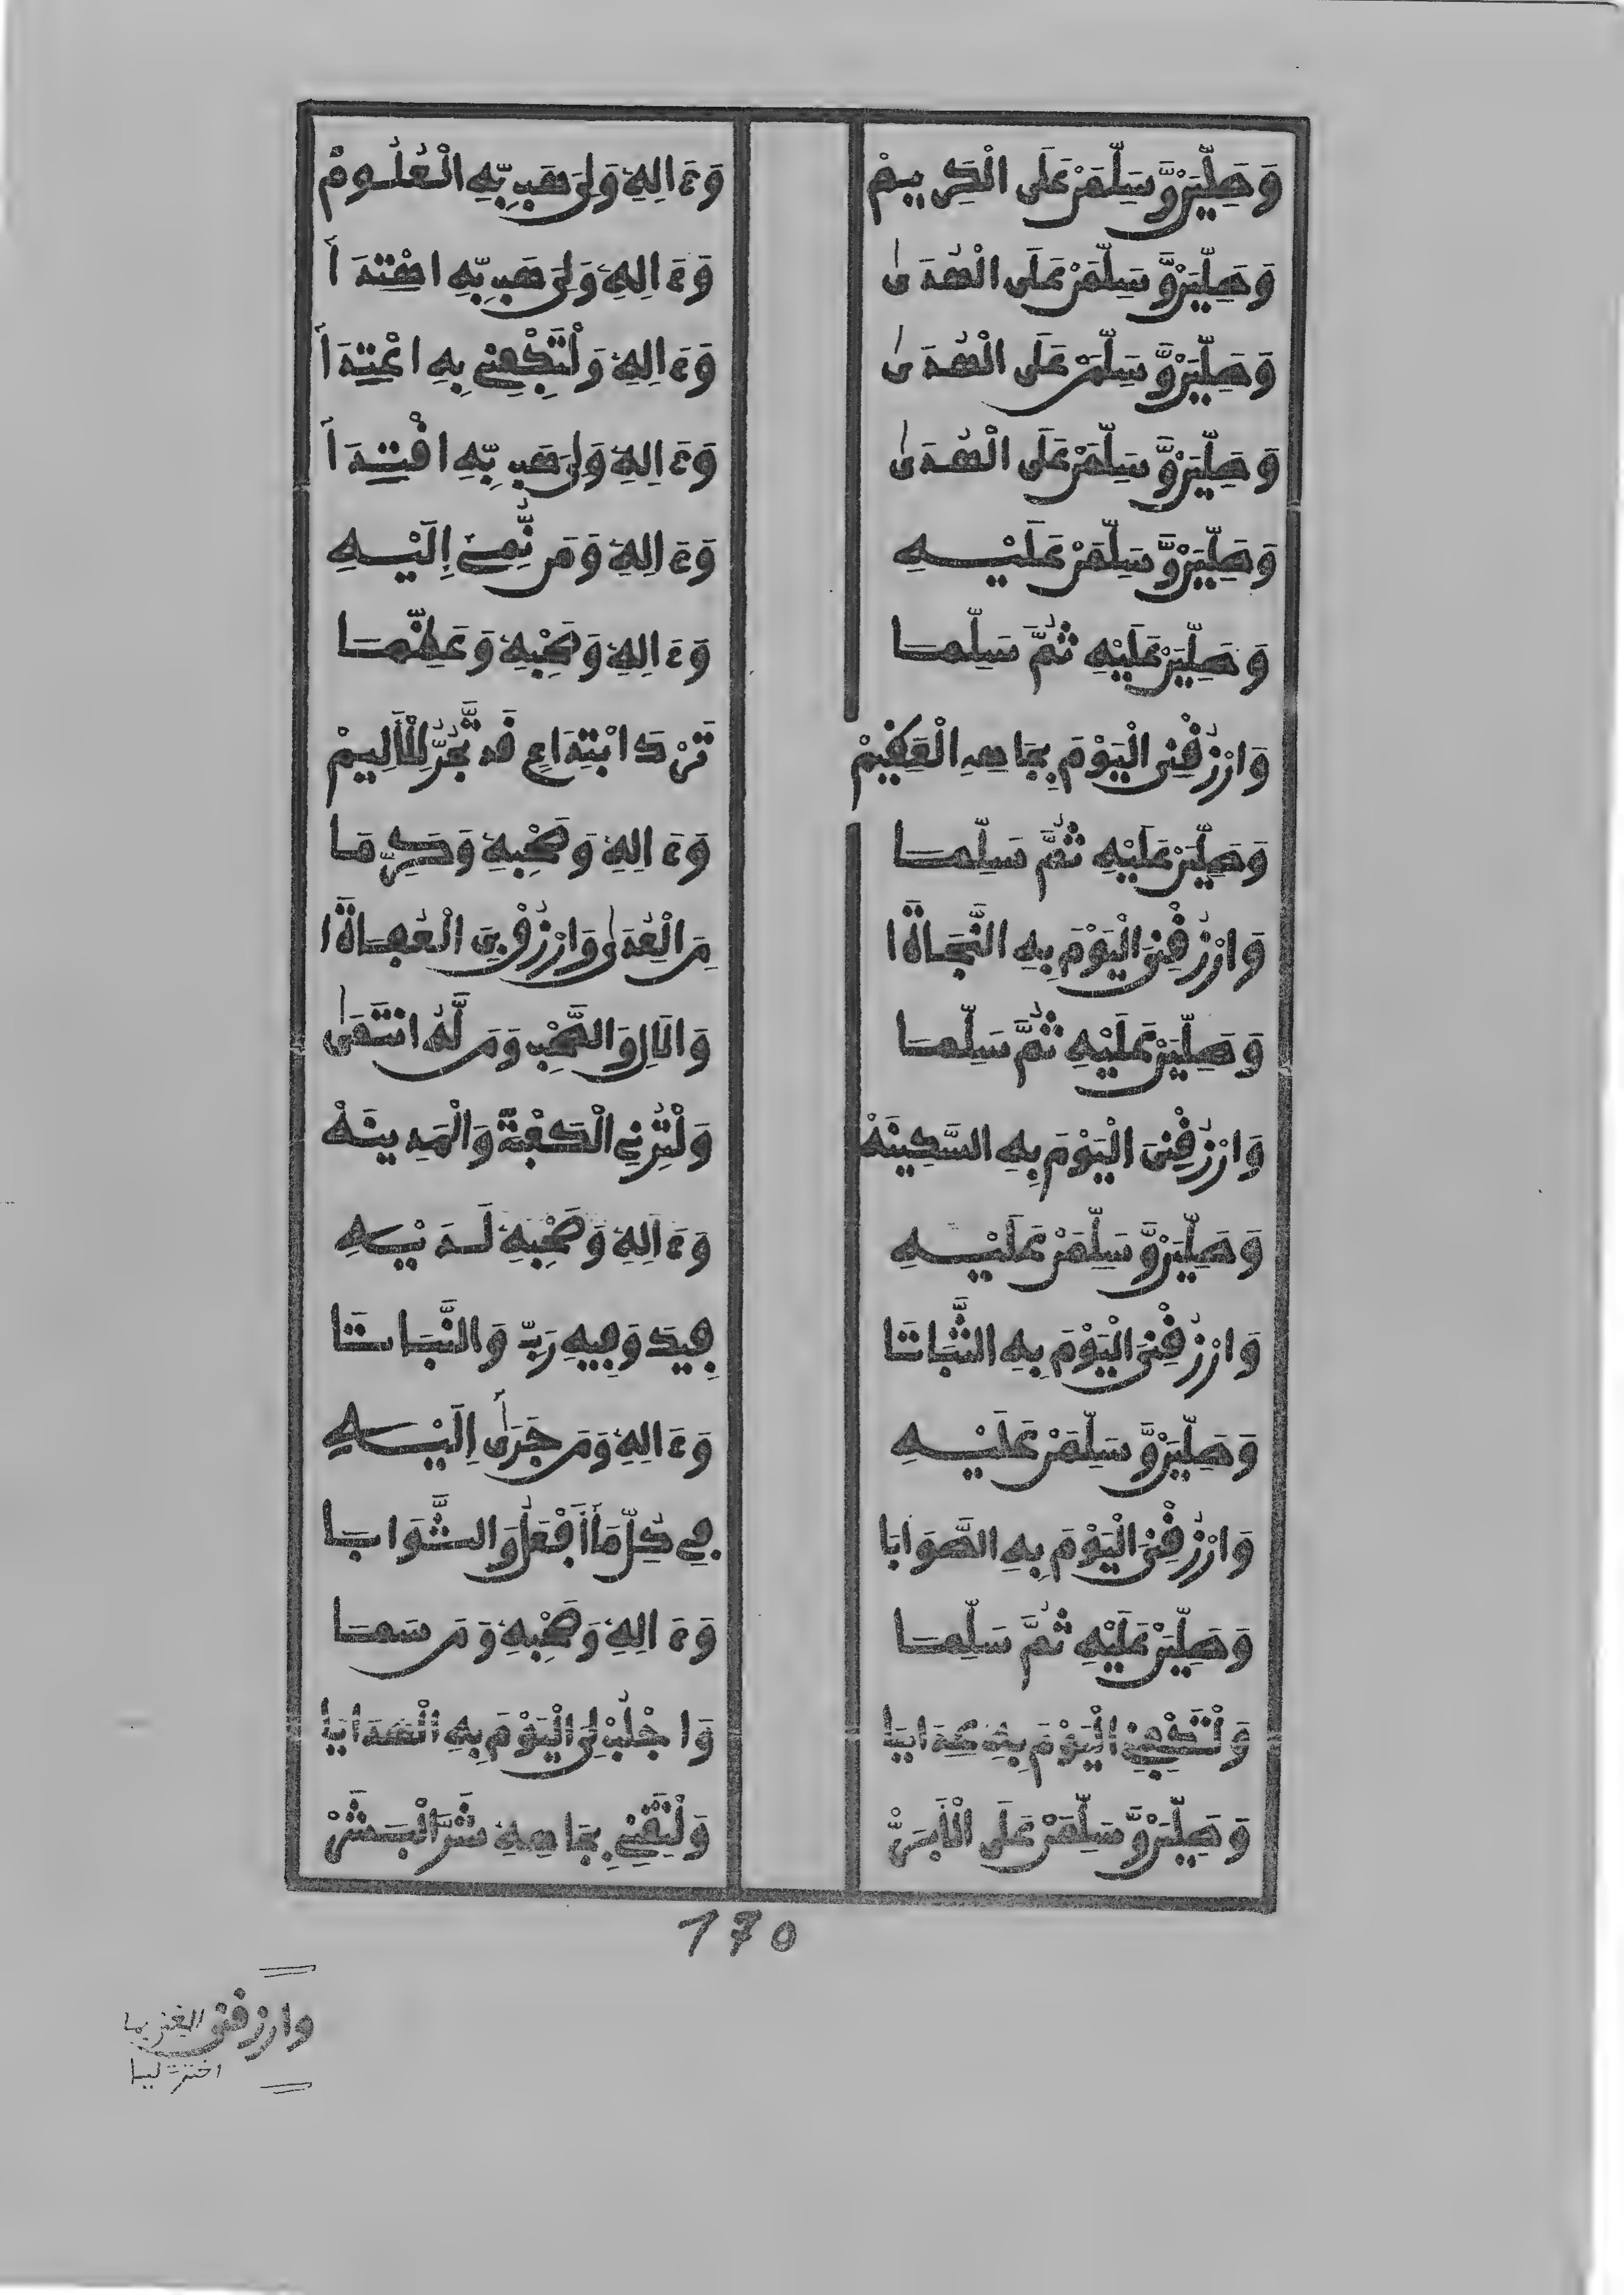 وَصَلِّيَنْ وَّسَلِّمَنْ عَلَى الْكَرِيمْ وَءَالِهِ وَلِيَ هَبْ بِّهِ الْعُلُومْ
وَصَلِّيَنْ وَّسَلِّمَنْ عَلَى الْهُدَىٰ وَءَالِهِ وَلِيَ هَبْ بِّهِ اهْتِدَا
وَصَلِّيَنْ وَّسَلِّمَنْ عَلَى الْهُدَىٰ وَءَالِهِ وَلْتَكْفِنِي بِهِ اعْتِدَا
وَصَلِّيَنْ وَّسَلِّمَنْ عَلَى الْهُدَىٰ وَءَالِهِ وَلِيَ هَبْ بِّهِ اقْتِدَا
وَصَلِّيَنْ وَّسَلِّمَنْ عَلَيْهِ وَءَالِهِ وَمَن نُّمِي إِلَيْهِ
وَصَلِّيَنْ عَلَيْهِ ثُمَّ سَلِّمَا وَءَالِهِ وَصَحْبِهِ وَعَظِّمَا
وَارْزُقْنِيَ الْيَوْمَ بِجَاهِهِ الْعَظِيمْ تَرْكَ ابْتِدَاعٍ قَد تَّجُرُّ لِلْأَلِيمْ
وَصَلِّيَنْ عَلَيْهِ ثُمَّ سَلِّمَا وَءَالِهِ وَصَحْبِهِ وَكَرِّمَا
وَارْزُقْنِيَ الْيَوْمَ بِهِ النَّجَاةَا مِنَ الْعِدَىٰ وَارْزُقْ بِيَ الْعُفَاةَا
وَصَلِّيَنْ عَلَيْهِ ثُمَّ سَلِّمَا وَالَالِ وَالصَّحْبِ وَمَن لَّهُ انْتَمَىٰ
وَارْزُقْنِيَ الْيَوْمَ بِهِ السَّكِينَهْ وَلْتُرِنِي الْكَعْبَةَ وَالْمَدِينَهْ
وَصَلِّيَنْ وَّسَلِّمَنْ عَلَيْهِ وَءَالِهِ وَصَحْبِهِ لَدَيْهِ
وَارْزُقْنِيَ الْيَوْمَ بِهِ الثَّبَاتَا فِيكَ وَفِيهِ رَبِّ وَالنَّبَاتَا
وَصَلِّيَنْ وَّسَلِّمَنْ عَلَيْهِ وَءَالِهِ وَمَن جَرَىٰ إِلَيْهِ
وَارْزُقْنِيَ الْيَوْمَ بِهِ الصَّوَابَا فِي كُلِّ مَا أَفْعَلُ وَالثَّوَابَا
وَصَلِّيَنْ عَلَيْهِ ثُمَّ سَلِّمَا وَءَالِهِ وَصَحْبِهِ وَمَن سَمَا
وَلْتَكْفِنِي الْيَوْمَ بِهِ عِدَايَا وَاجْلُبْ لِيَ الْيَوْمَ بِهِ الْهَدَايَا
وَصَلِّيَنْ وَّسَلِّمَنْ عَلَى الْأَبَرّْ وَلْتَقِنِي بِجَاهِهِ شَرَّ الْبَشَرْ
170
وارزقنى اليقين بما
اخترت ليا